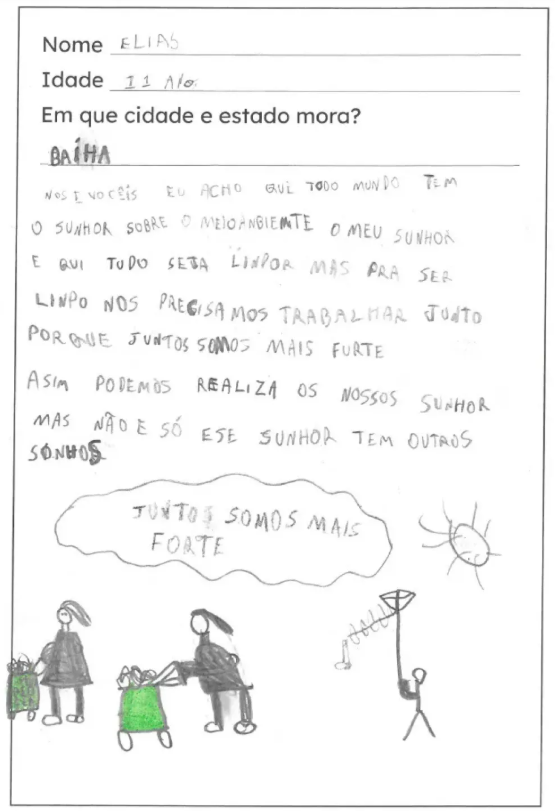 Nome ELIAS
Idade 11 Ano
Em que cidade e estado mora?
BAÍHA
NOS E VOCEIS EU ACHO QUI TODO MUNDO TEM
O SUNHOR SOBRE O MEIOANBIEMTE O MEU SUNHOR
E QUI TUDO SEJA LINPOR MAS PRA SER
LINPO NOS PRECISAMOS TRABALHAR JUNTO
PORQUE JUNTOS SOMOS MAIS FURTE
ASIM PODEMOS REALIZA OS NOSSOS SUNHOR
MAS NÃO E SÓ ESE SUNHOR TEM OUTROS
SONHOS
JUNTOS SOMOS MAIS
FORTE